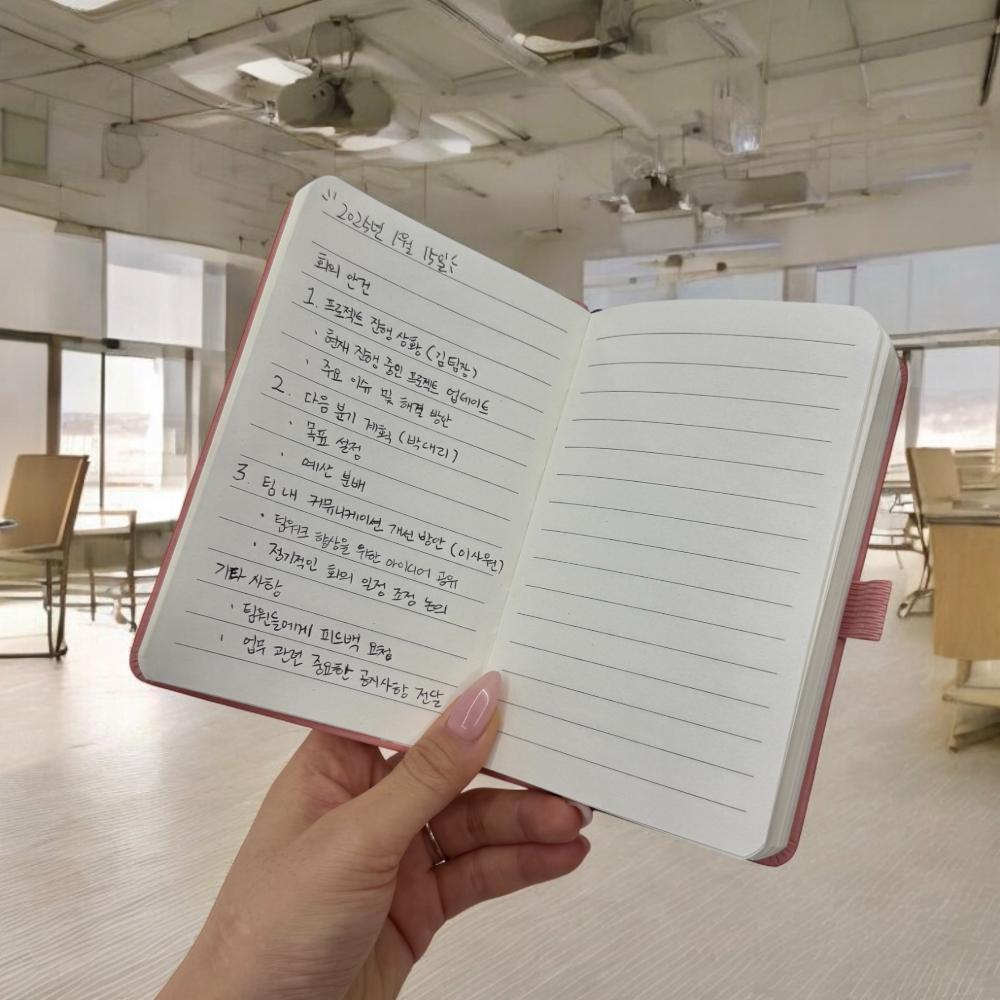 2025년 1월 15일
회의 안건
1. 프로젝트 진행 상황 (김팀장)
· 현재 진행 중인 프로젝트 업데이트
· 주요 이슈 및 해결 방안
2. 다음 분기 계획 (박대리)
· 목표 설정
· 예산 분배
3. 팀 내 커뮤니케이션 개선 방안 (이사원)
· 팀워크 향상을 위한 아이디어 공유
· 정기적인 회의 일정 조정 논의
기타 사항
· 팀원들에게 피드백 요청
· 업무 관련 중요한 공지사항 전달